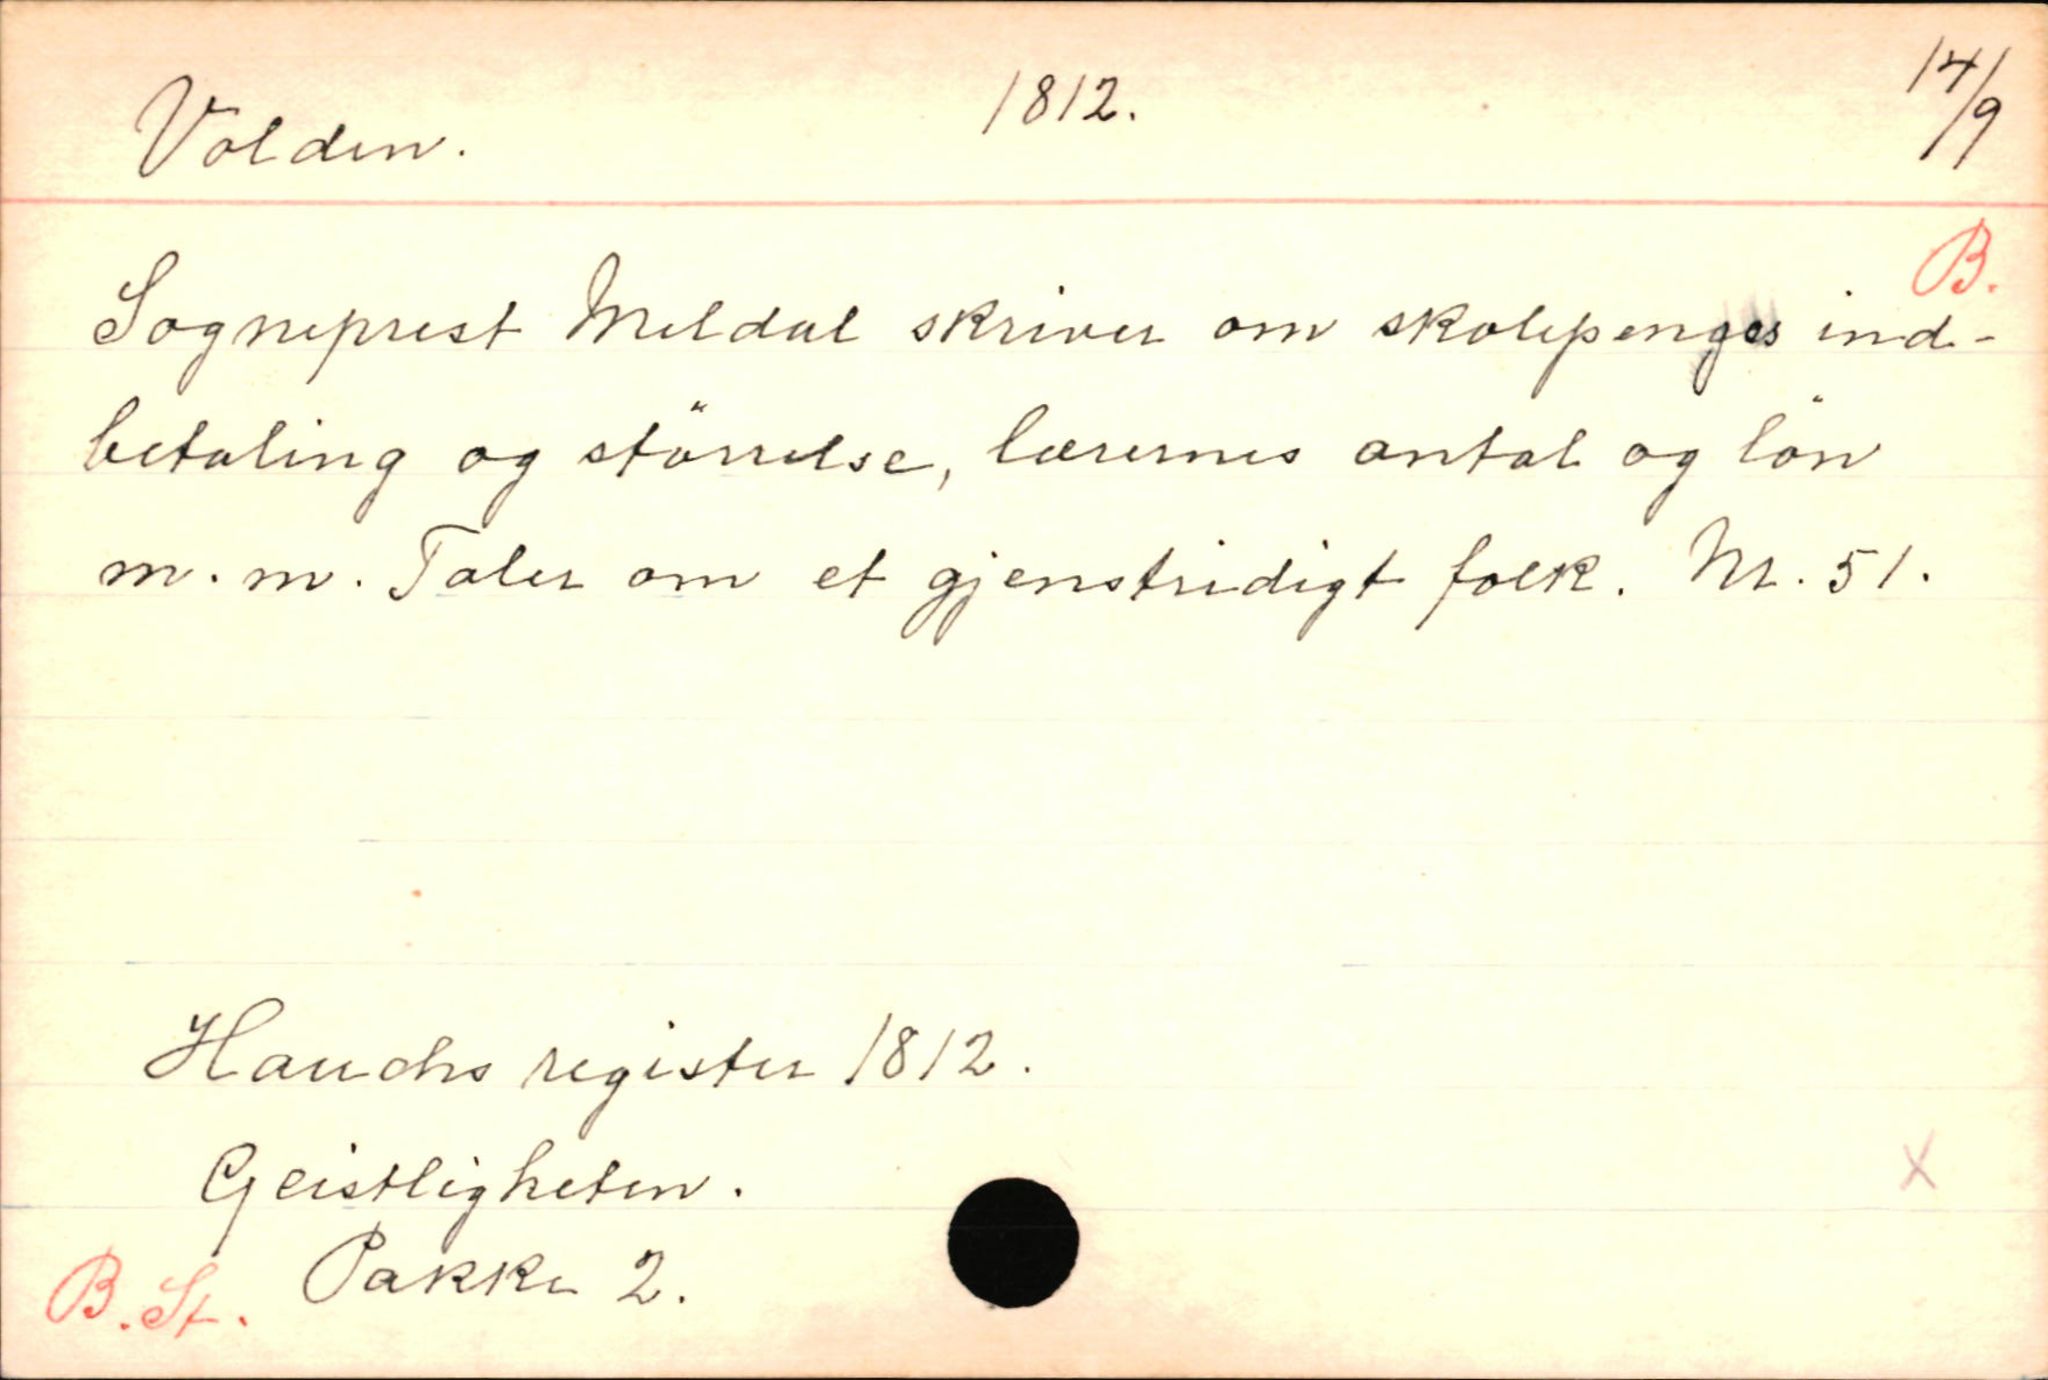 Volden. 1812. 14/9
B.
Sogneprest Meldal skriver om skolepenges ind-
betaling og störrelse, lærernes antal og lön
m.m. Taler om et gjenstridigt folk. Nr. 51.
Hauchs register 1812.
Geistligheten. X
B. St. Pakke 2.